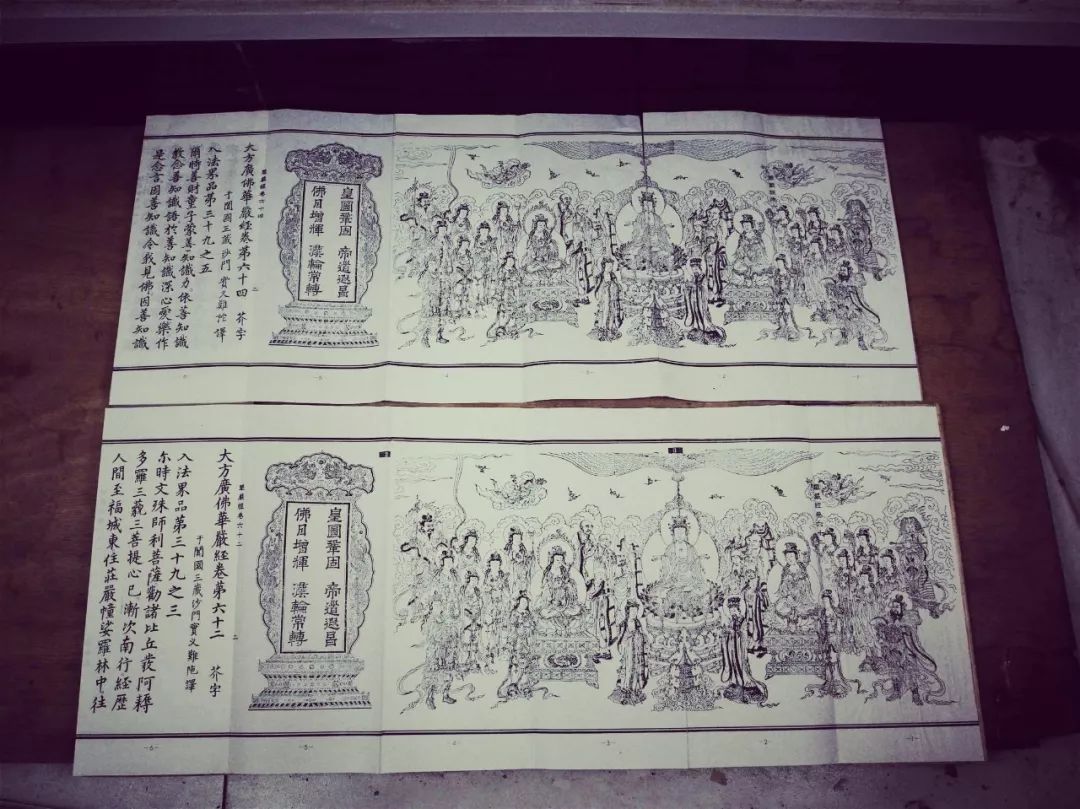 皇圖鞏固 帝道遐昌
佛日增輝 灋輪常轉
華嚴經卷六十四
二
大方廣佛華嚴經卷第六十四 芥字
于闐國三藏沙門實叉難陀譯
入法界品第三十九之五
爾時善財童子蒙善知識力依善知識
教念善知識語於善知識深心愛樂作
是念言因善知識令我見佛因善知識
華嚴經卷六
皇圖鞏固 帝道遐昌
佛日增輝 灋輪常轉
華嚴經卷六十二
二
大方廣佛華嚴經卷第六十二 芥字
于闐國三藏沙門實叉難陀譯
入法界品第三十九之三
尒時文殊師利菩薩勸諸比丘發阿耨
多羅三藐三菩提心已漸次南行經歷
人間至福城東住莊嚴幢娑羅林中往
-1-
-2-
-3-
-4-
-5-
-6-